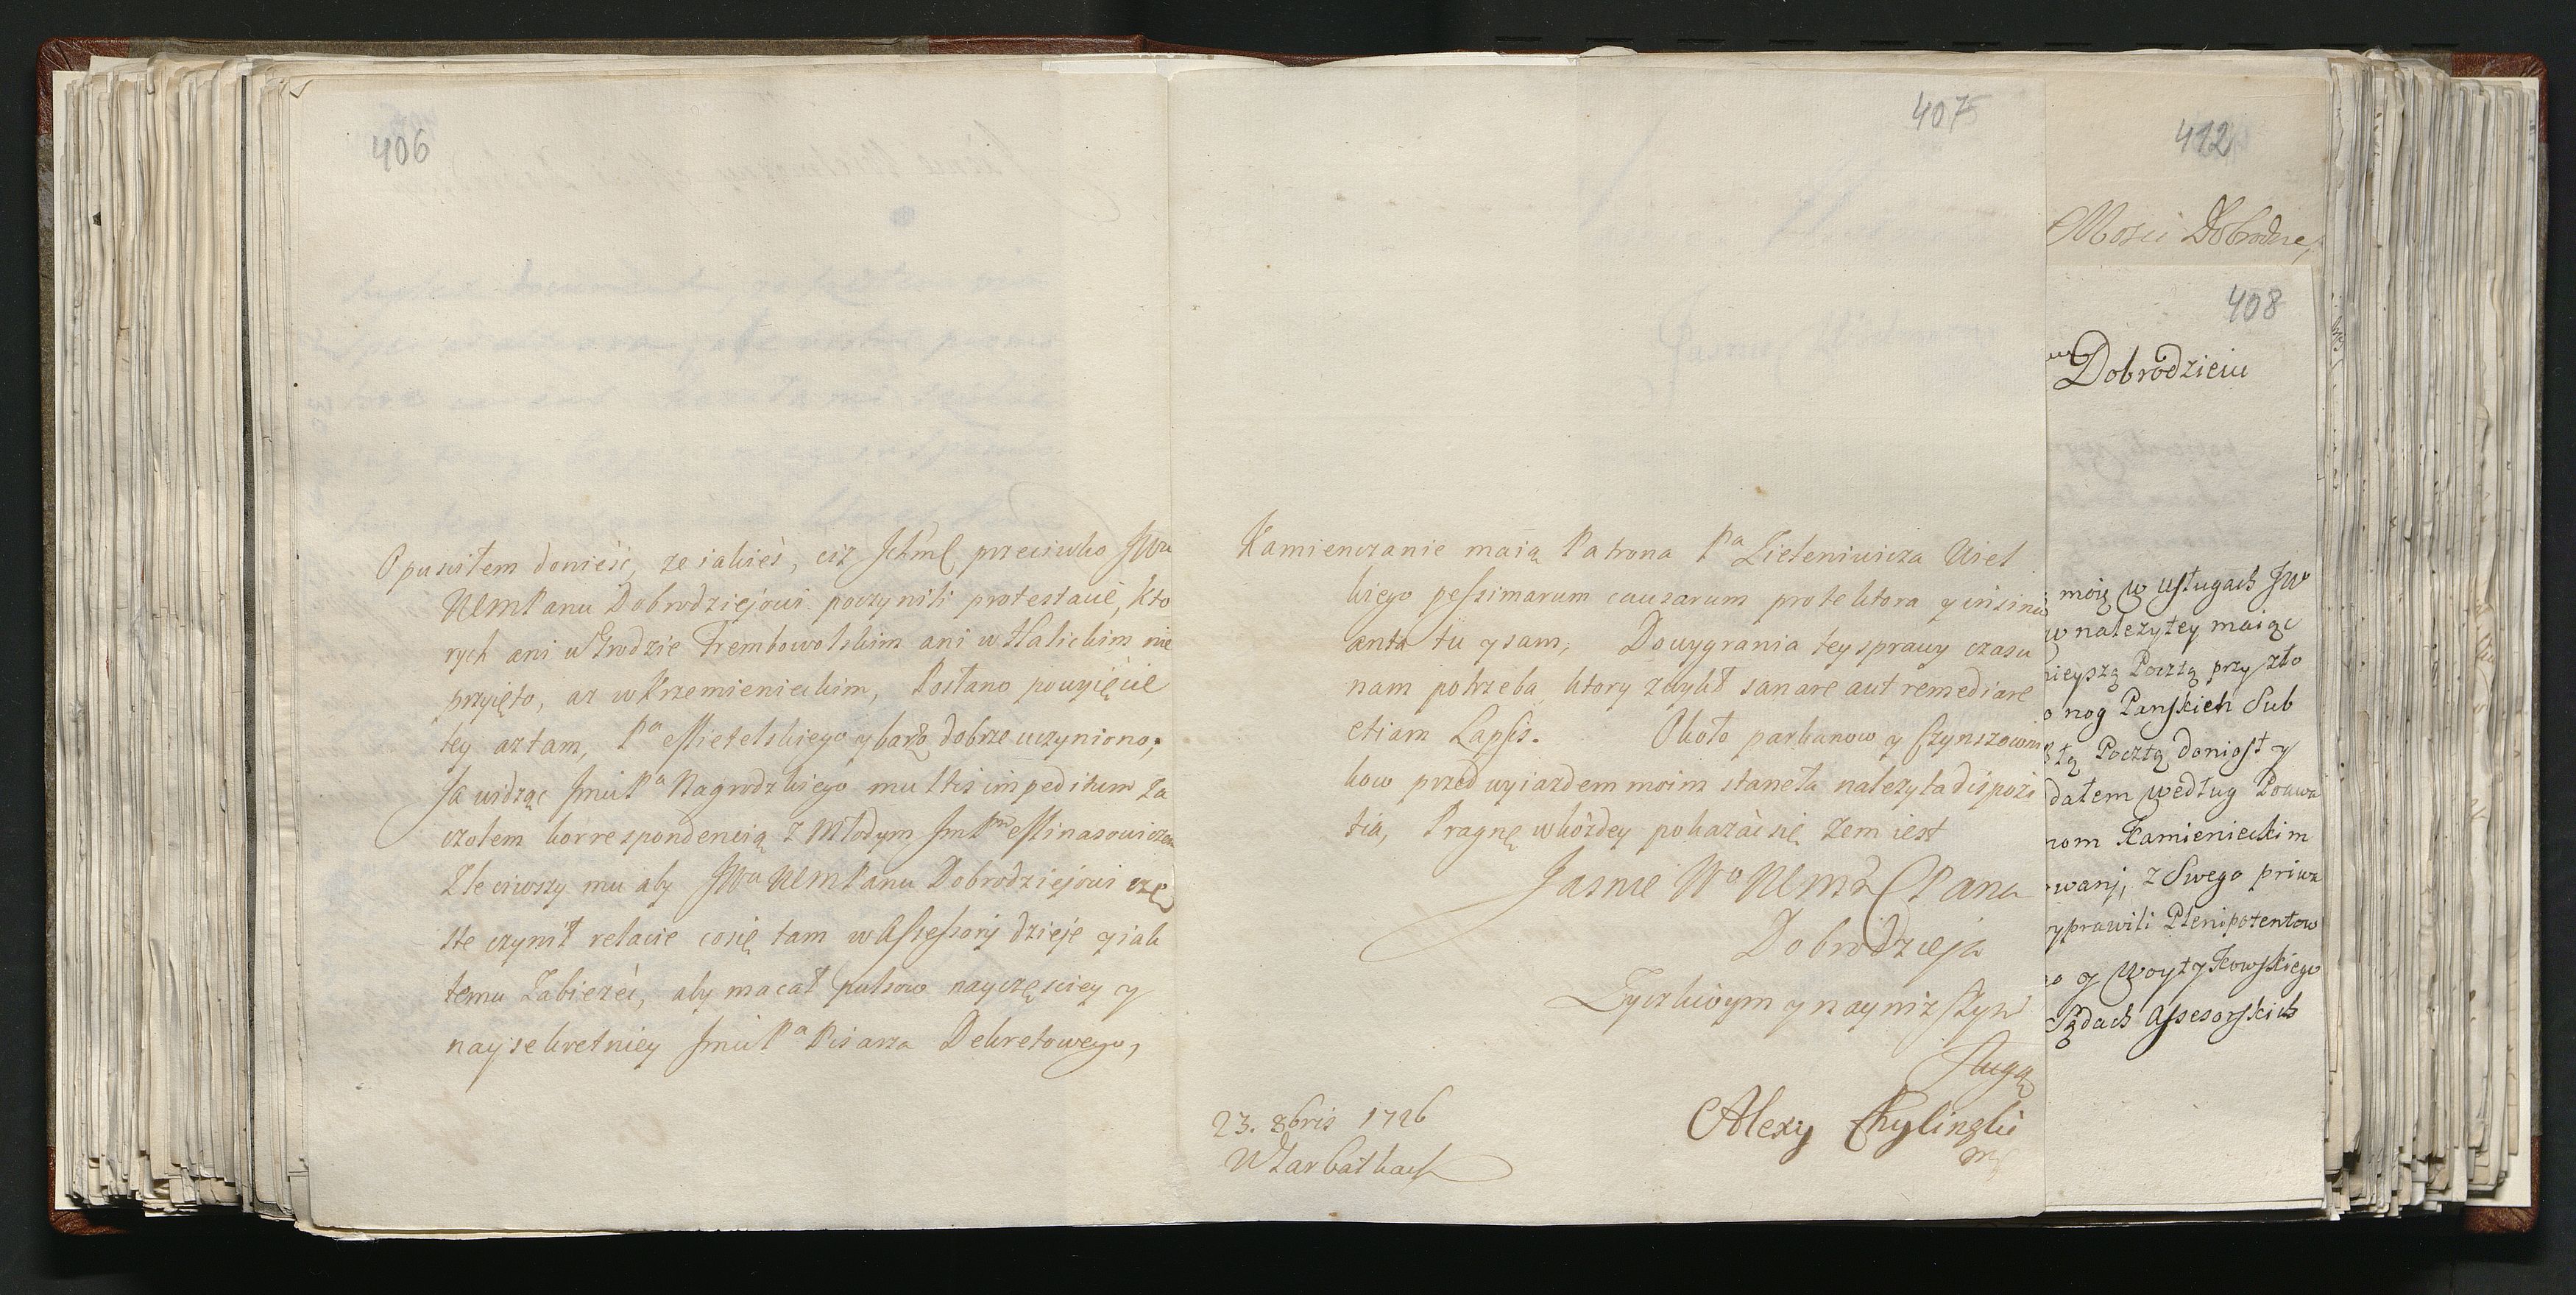 406
Opusciłem donieść, ze iakieś, ciż Ichmć przeciwko JWu
WMM Panu Dobrodziejowi poczynili protestacie, kto
rych ani w Grodzie Trembowolskim ani w Halickim nie
przyięto, az w Krzemienieckim, Posłano po wyięcie
tey aztam, Pa Mietelskiego y barzo dobrze uczyniono;
Ja widząc Jmci Pa Nagrodzkiego multis impeditum Za
czołem korrespondencią z Młodym Jmć Pm Minasowiczem
Zleciwszy mu aby JWu WMM Panu Dobrodziejowi czę
ste czynił relacie co się tam w Assessoryi dzieje y iak
temu Zabieżeć, aby macał pulsow nayczęściey y
naysekretniey Jmci Pa Pisarza Dekretowego,
407
Kamienczanie maią Patrona Pa Zieleniewicza Wiel
kiego pessimarum causarum protektora y insinu
anta tu y sam; Do wygrania tey sprawy czasu
nam potrzeba ktory zwykł sanare aut remediare
etiam Lapsis. Około parkanow y Czynszowni
kow przed wyiazdem moim staneła należyta dispozi
tia, Pragnę w kożdey pokazać się żem iest
Jasnie Wo WMM Pana
Dobrodzieja
Zyczliwym y nayniższym
Sługą
Alexy Chylinzki
mp
23. 8bris 1726
W Zarbatkach
412
Mosci Dobrodzie,
408
Dobrodzieiu
moię w usługach JW
w nalezytey maiąc
nieyszą Pocztą przy zło
o nog Panskich Sub
tą Pocztą doniosł y
dałem według Prawa
nom Kamienieckim
wanj, z Swego priwa
yprawili Plenipotentow
o y Woytykowskiego
Sądach Assesorskich